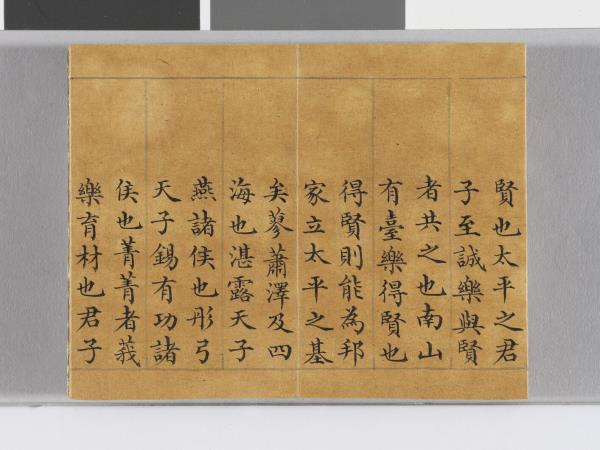 賢也太平之君
子至誠樂與賢
者共之也南山
有臺樂得賢也
得賢則能為邦
家立太平之基
矣蓼蕭澤及四
海也湛露天子
燕諸侯也彤弓
天子錫有功諸
侯也菁菁者莪
樂育材也君子